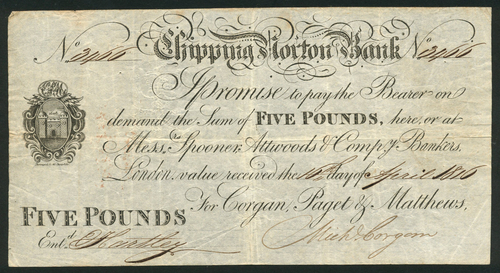 No. 3466 Chipping Norton Bank No. 3466
I promise to pay the Bearer on
demand the Sum of FIVE POUNDS, here, or at
Messrs Spooner, Attwoods & Compy. Bankers,
London, value received the day of April 1816
For Corgan, Paget & Matthews,
FIVE POUNDS
Entd. Hartley Michd. Corgan